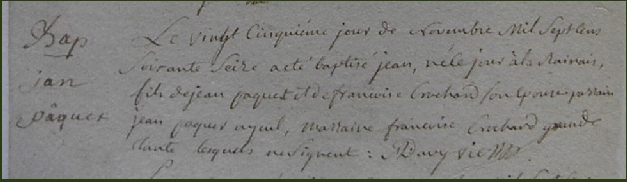 Bap
jan
pâquer
Le vingt Cinquiéme jour de Novembre Mil Sept Cens
soixante Seize a eté baptisé jean, né le jour à la
fils de jean paquer et de francoise Cruchard son Epouse parain
jean paquer ayeul, maraine francoise Cruchard grande
tante lesquels ne signent : Davy